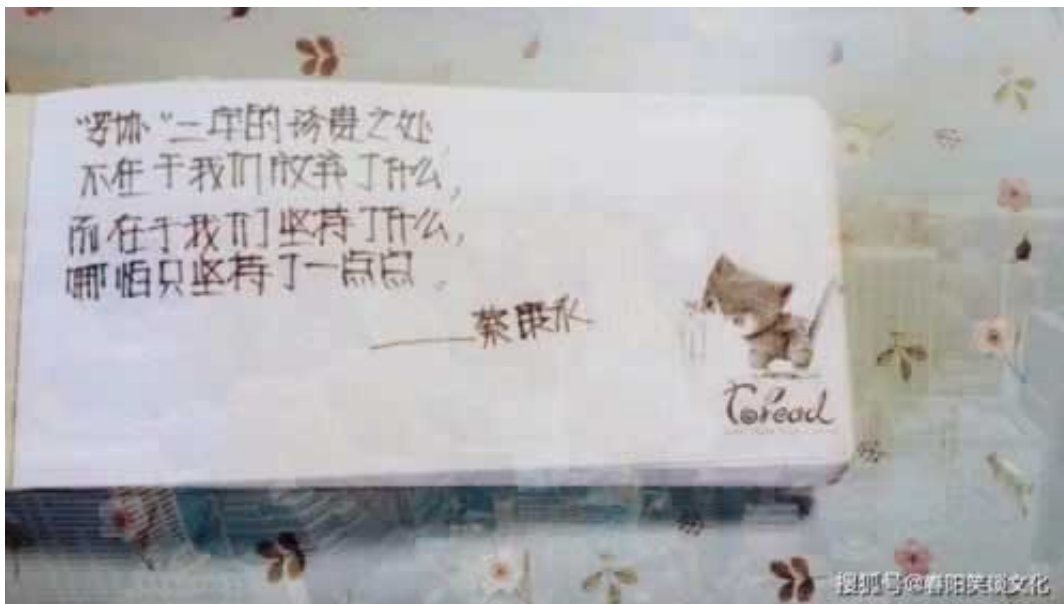 “妥协”二字的珍贵之处
不在于我们放弃了什么,
而在于我们坚持了什么,
哪怕只坚持了一点点。
——蔡康永
Toread
搜狐号@春阳笑谈文化